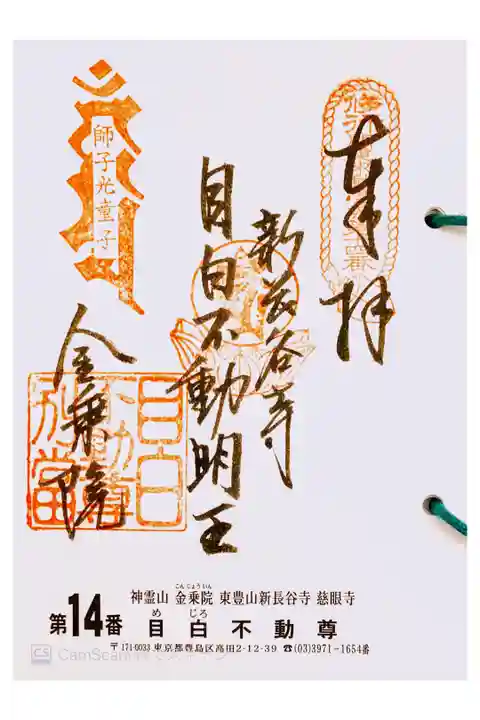 奉拝
新長谷寺
目白不動明王
金乗院
師子光童子
目白不動尊別當
神霊山 金乗院 東豊山新長谷寺 慈眼寺
こんじょういん
第14番 目白不動尊
めじろ
〒171-0033 東京都豊島区高田2-12-39 ☎(03)3971-1654番
CS CamScanner